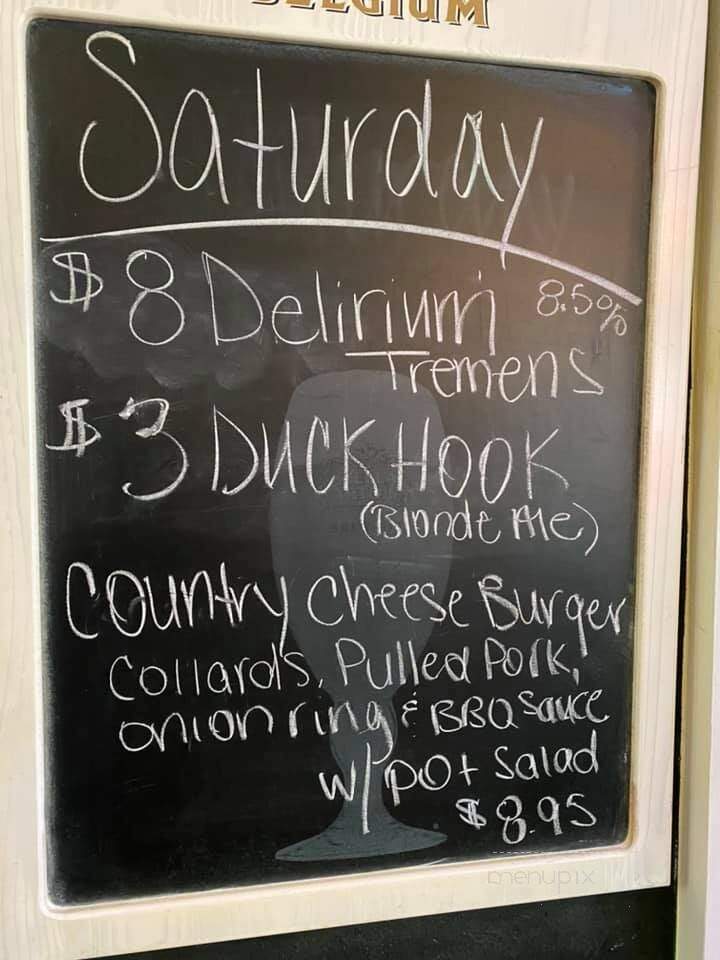 BELGIUM
Saturday
$8 Delirium 8.5%
Tremens
$3 DUCK HOOK
(Blonde Ale)
Country Cheese Burger
Collards, Pulled Pork,
onion ring & BBQ Sauce
w/ pot Salad
$8.95
menupix